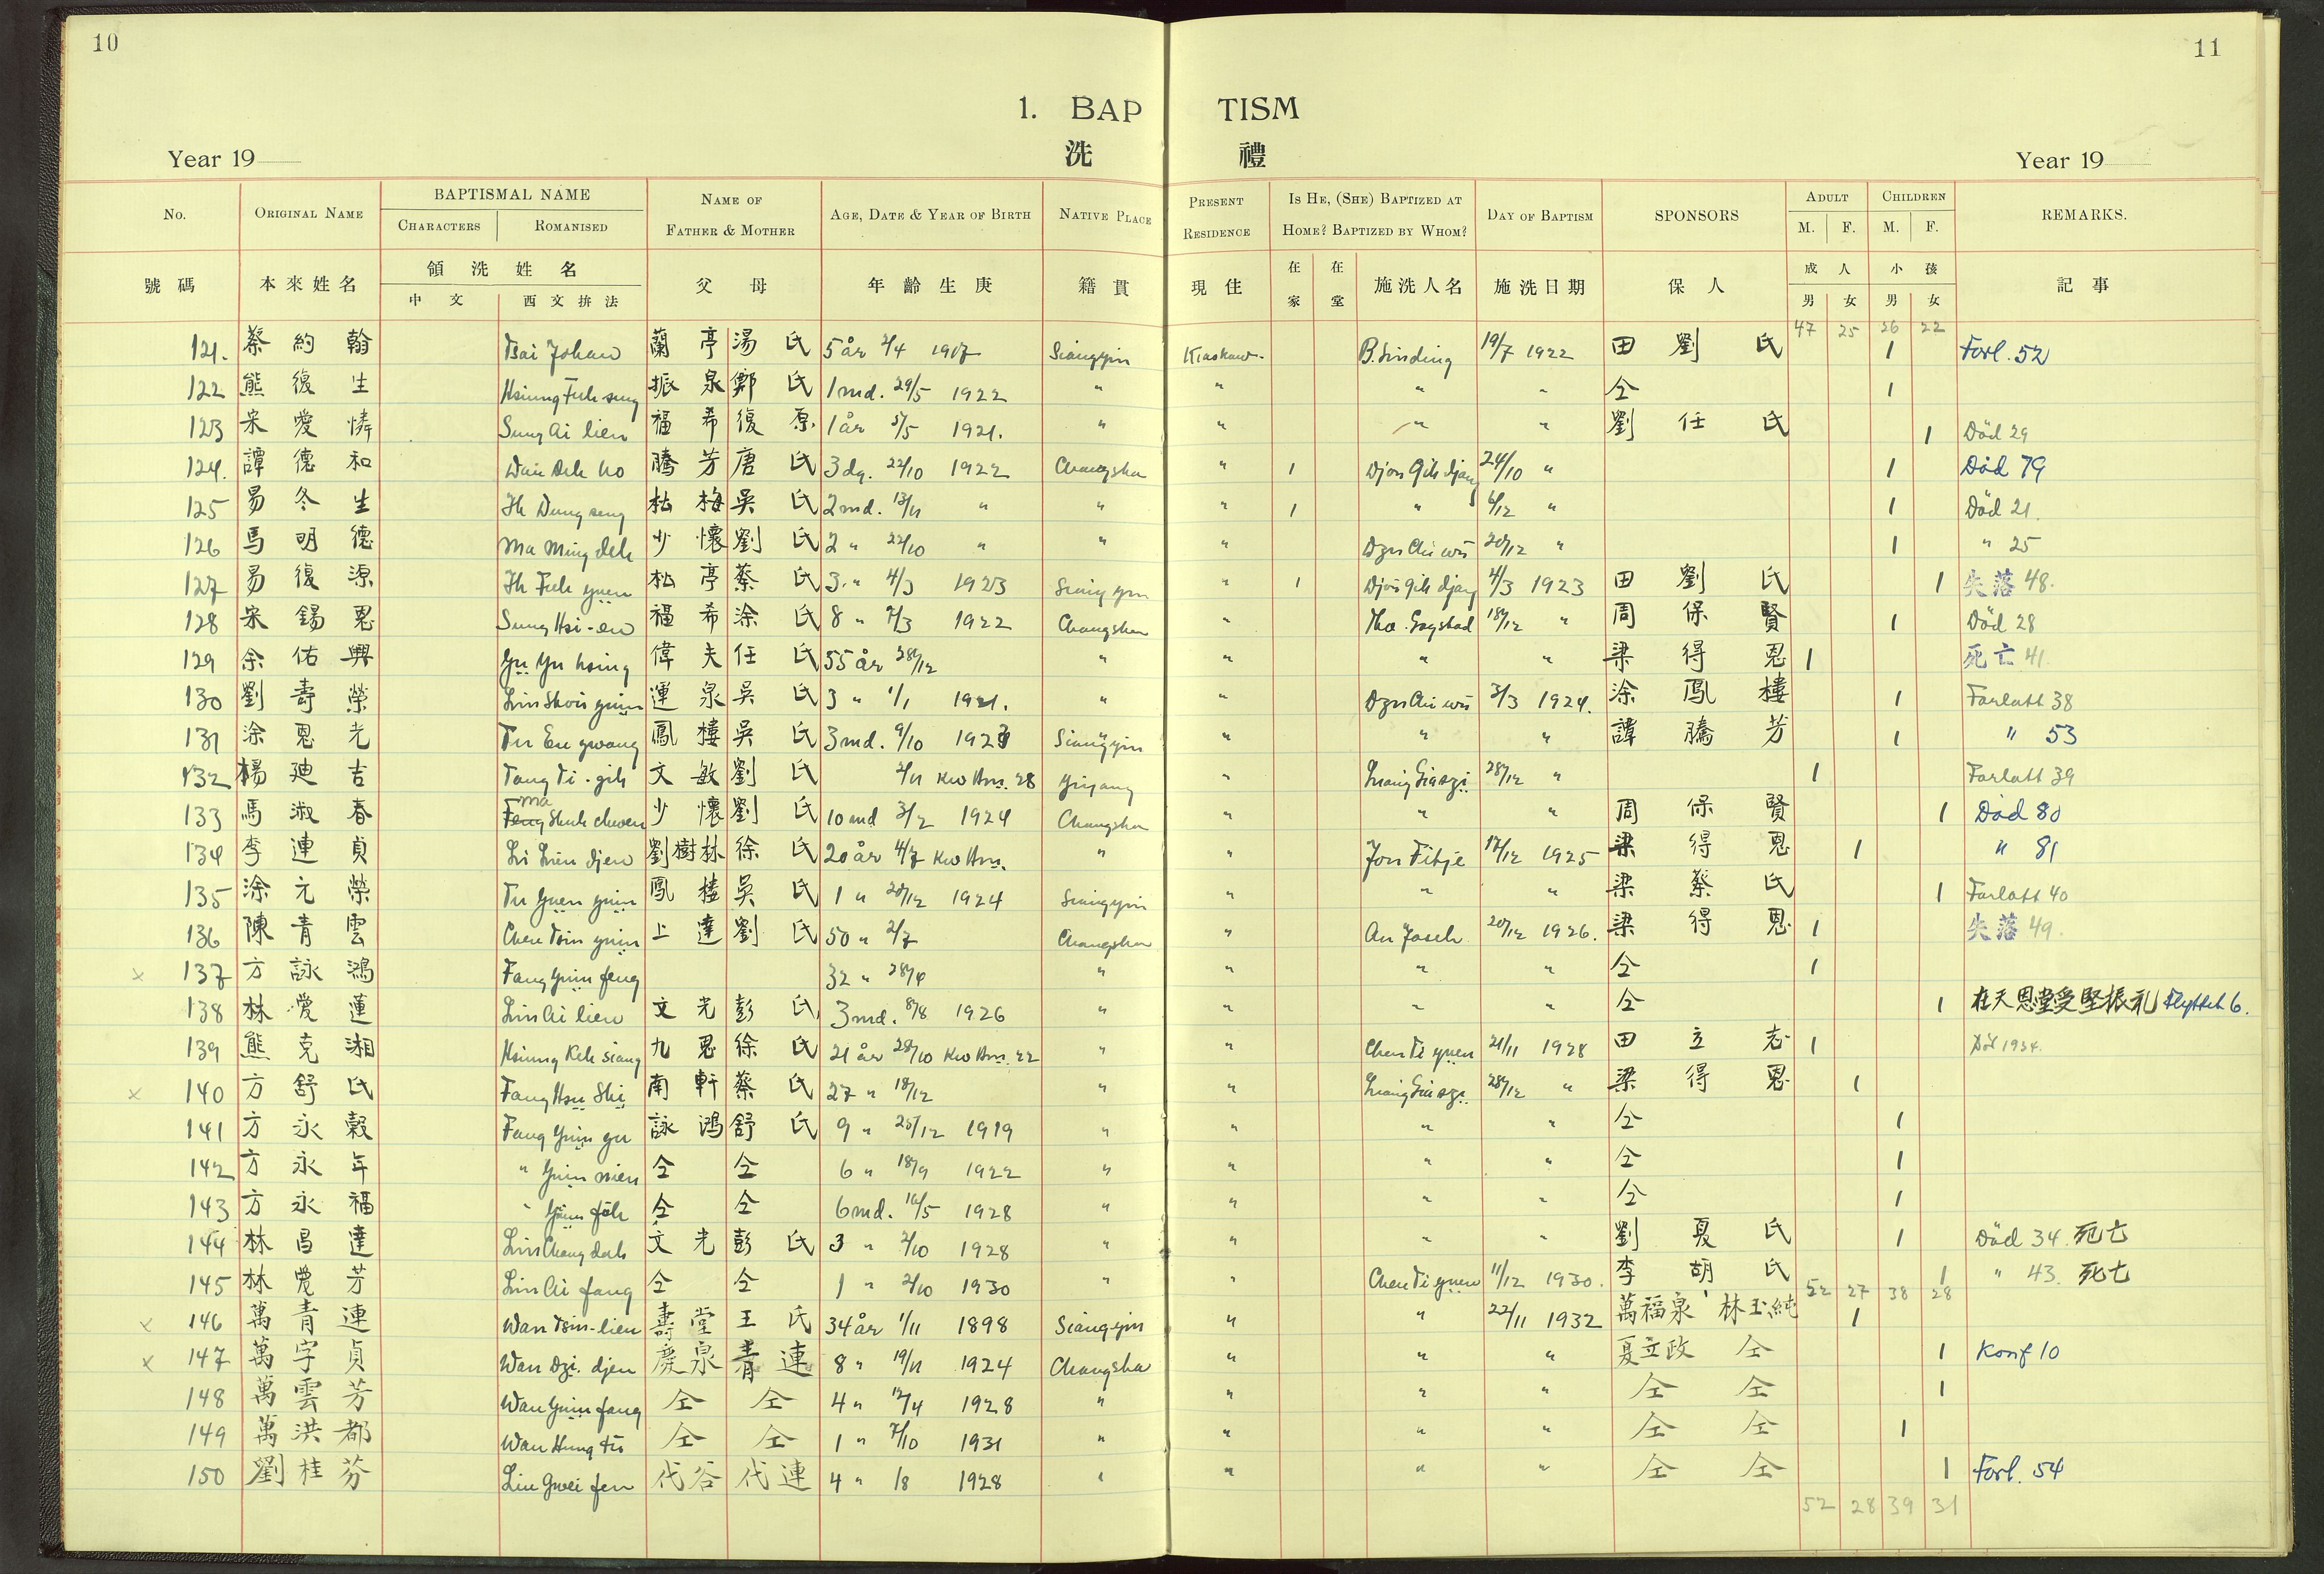 10
11
1. BAP TISM
洗 禮
Year 19
Year 19
No. ORIGINAL NAME BAPTISMAL NAME CHARACTERS ROMANISED NAME OF FATHER & MOTHER AGE, DATE & YEAR OF BIRTH NATIVE PLACE PRESENT RESIDENCE IS HE, (SHE) BAPTIZED AT HOME? BAPTIZED BY WHOM? DAY OF BAPTISM SPONSORS ADULT M. F. CHILDREN M. F. REMARKS.
號碼 本來姓名 領洗姓名 中文 西文拚法 父母 年齡生庚 籍貫 現住 在家 在堂 施洗人名 施洗日期 保人 成人 男 女 小孩 男 女 記事
47 25 26 22
121. 蔡約翰 Tsai Johan 蘭亭 湯氏 5 år 2/4 1917 Siangyin B. Sinding 19/7 1922 田劉氏 1 Forl. 52
122 熊復生 Hsiung Fuh seng 振泉 鄭氏 1 md. 29/5 1922 " " " " 仝 1
123 宋愛憐 Sung Ai lien 福希 復原 1 år 5/5 1921. " " " " 劉任氏 1 Död 29
124. 譚德和 Deh ho 騰芳 唐氏 3 dg. 22/10 1922 Changsha " 1 Djou Gih djang 24/10 " 1 Död 79
125 易冬生 Ih Dung seng 松梅 吳氏 2 md. 13/11 " " " 1 " 6/12 " 1 Död 21.
126 馬明德 Ma Ming deh 少懷 劉氏 2 " 22/10 " " " Dzu Chi wü 20/12 " 1 " 25
127 易復源 Ih Fuh yuen 松亭 蔡氏 3 " 4/3 1923 Siangyin " 1 Djou Gih djang 4/3 1923 田劉氏 1 失落 48.
128 宋錫恩 Sung Hsi-en 福希 涂氏 8 " 7/3 1922 Changsha " Tho. Gogstad 18/12 " 周保賢 1 Död 28
129 余佑興 Yu Yu hsing 偉夫 任氏 55 år 28/12 " " " " 梁得恩 1 死亡 41.
130 劉壽榮 Liu Shou yuin 運泉 吳氏 3 " 1/1 1921. " " Dzu Chi wü 3/3 1924. 涂鳳樓 1 Forlatt 38
131 涂恩光 Tu En gwang 鳳樓 吳氏 3 md. 9/10 1923 Siangyin " " " 譚騰芳 1 " 53
132 楊廸吉 Yang Ti-gih 文敏 劉氏 2/11 Kw Hsü. 28 Yiyang Liang Gia szi 28/12 " 1 Forlatt 39
133 馬淑春 Ma Shuh chwen 少懷 劉氏 10 md 3/2 1924 Changsha " " 周保賢 1 Död 80
134 李連貞 Li Lien djen 劉樹林 徐氏 20 år 4/7 Kw Hsü. " " Jon Fitje 17/12 1925 梁得恩 1 " 81
135 涂元榮 Tu Yuen yuin 鳳樓 吳氏 1 " 20/12 1924 Siangyin " " " 梁蔡氏 1 Forlatt 40
136 陳青雲 Chen Tsin yuin 上達 劉氏 50 " 2/7 Changsha " An Joseh 20/12 1926. 梁得恩 1 失落 49.
x 137 方詠鴻 Fang Yuin feng 32 " 28/4 " " " " 仝 1
138 林愛蓮 Lin Ai lien 文光 彭氏 3 md. 8/8 1926 " " " " 仝 1 在天恩堂受堅振礼 Flyttet 6.
139 熊克湘 Hsiung Keh siang 九恩 徐氏 21 år 28/10 Kw Hsü. 22 " " Chen Ti yuen 21/11 1928 田立志 1 Död 1934.
x 140 方舒氏 Fang Hsu Shi 南軒 蔡氏 27 " 18/12 " " Liang Gia szi 28/12 " 梁得恩 1
141 方永穀 Fang Yuin gu 詠鴻 舒氏 9 " 25/12 1919 " " " " 仝 1
142 方永年 " Yuin nien 仝 仝 6 " 18/9 1922 " " " " 仝 1
143 方永福 " Yuin fuh 仝 仝 6 md. 16/5 1928 " " " " 仝 1
144 林昌達 Lin Chang dah 文光 彭氏 3 " 2/10 1928 " " " " 劉夏氏 1 Död 34. 死亡
145 林愛芳 Lin Ai fang 仝 仝 1 " 2/10 1930 " " Chen Ti yuen 11/12 1930. 李胡氏 1 " 43. 死亡
52 27 38 28
x 146 萬青連 Wan Tsin-lien 壽堂 王氏 34 år 1/11 1898 Siangyin " " 22/11 1932 萬福泉 林玉純 1
x 147 萬字貞 Wan Dzi-djen 慶泉 青連 8 " 19/11 1924 Changsha " " " 夏立政 仝 1 Konf 10
148 萬雲芳 Wan Yuin fang 仝 仝 4 " 12/4 1928 " " " " 仝 仝 1
149 萬洪都 Wan Hung tu 仝 仝 1 " 7/10 1931 " " " " 仝 仝 1
150 劉桂芬 Liu Gwei fen 代谷 代連 4 " 1/8 1928 " " " " 仝 仝 1 Forl. 54
52 28 39 31